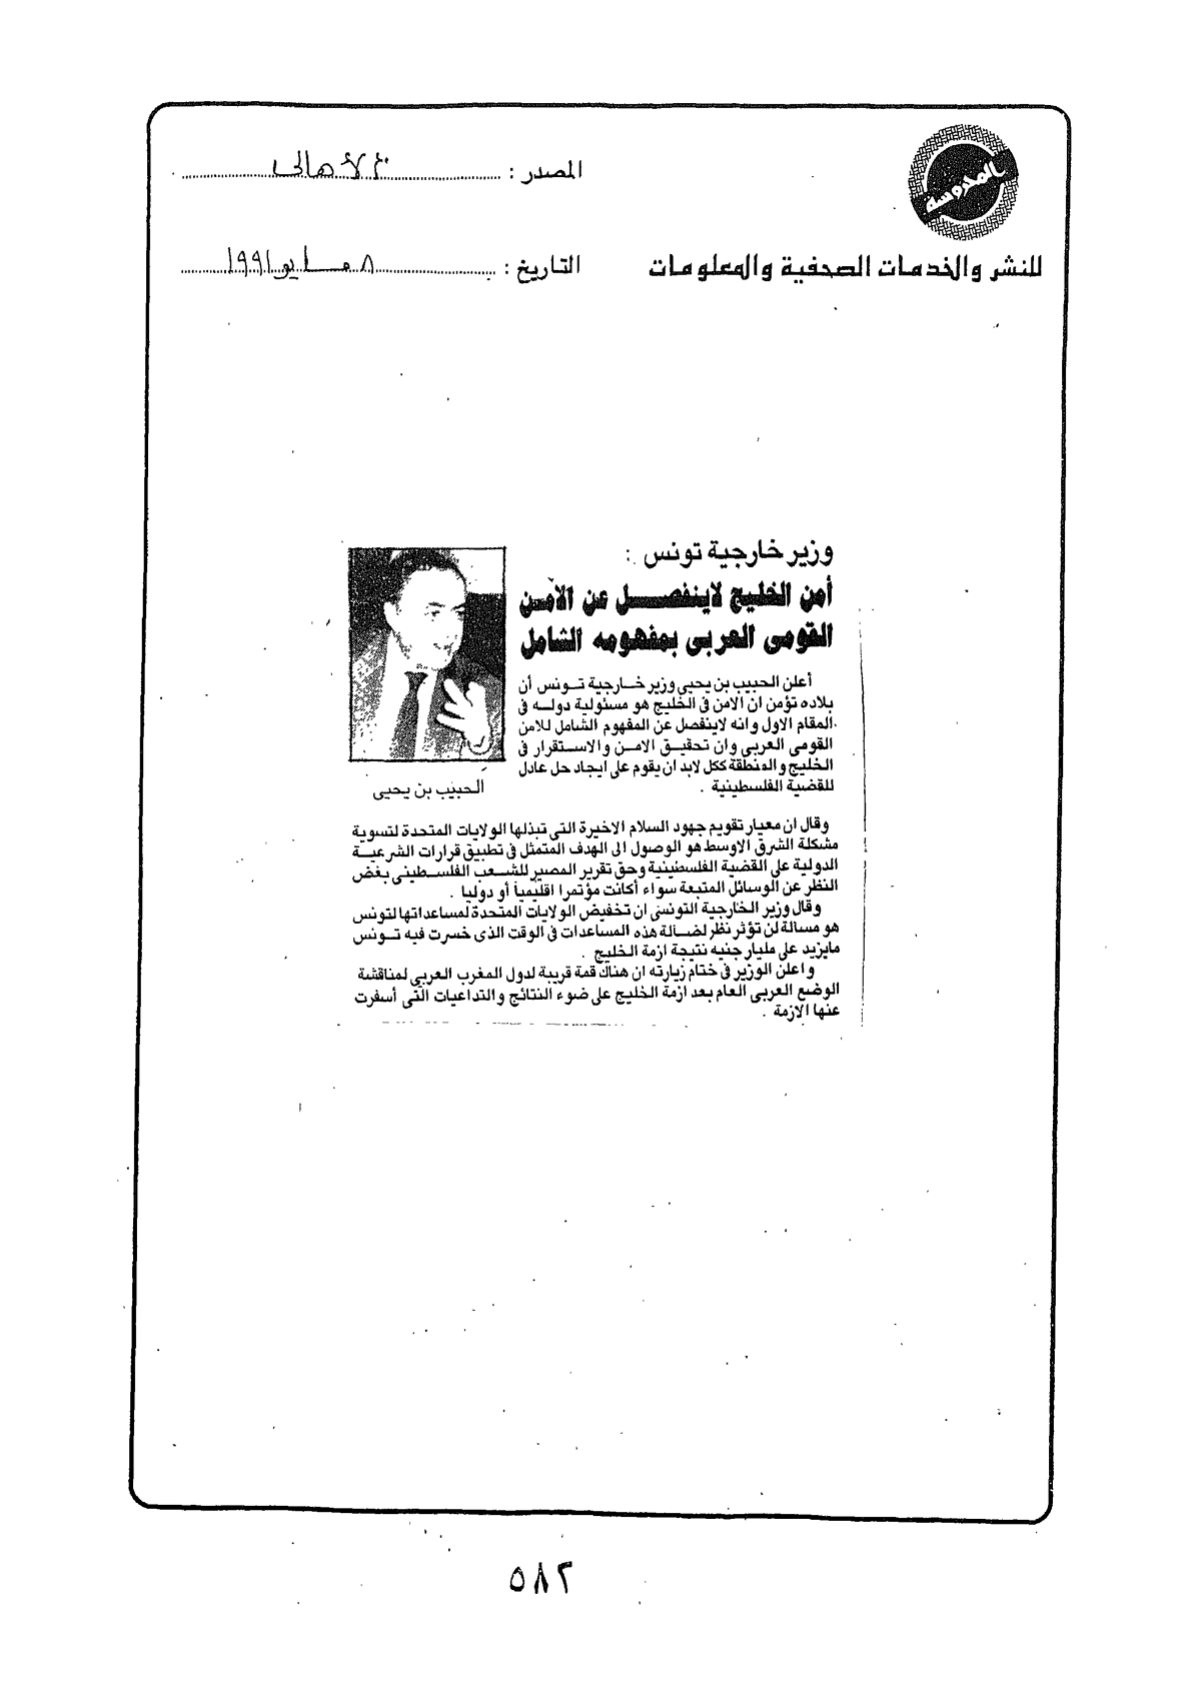 المدروسة
للنشر والخدمات الصحفية والمعلومات
المصدر : الأهالى
التاريخ : ٨ مايو ١٩٩١
وزير خارجية تونس :
أمن الخليج لاينفصل عن الأمن
القومى العربى بمفهومه الشامل
أعلن الحبيب بن يحيى وزير خارجية تونس أن
بلاده تؤمن ان الامن فى الخليج هو مسئولية دوله فى
المقام الاول وانه لاينفصل عن المفهوم الشامل للامن
القومى العربى وان تحقيق الامن والاستقرار فى
الخليج والمنطقة ككل لابد ان يقوم على ايجاد حل عادل
للقضية الفلسطينية .
الحبيب بن يحيى
وقال ان معيار تقويم جهود السلام الاخيرة التى تبذلها الولايات المتحدة لتسوية
مشكلة الشرق الاوسط هو الوصول الى الهدف المتمثل فى تطبيق قرارات الشرعية
الدولية على القضية الفلسطينية وحق تقرير المصير للشعب الفلسطينى بغض
النظر عن الوسائل المتبعة سواء أكانت مؤتمرا اقليمياً أو دوليا .
وقال وزير الخارجية التونسى ان تخفيض الولايات المتحدة لمساعداتها لتونس
هو مسالة لن تؤثر نظر لضالة هذه المساعدات فى الوقت الذى خسرت فيه تونس
مايزيد على مليار جنيه نتيجة ازمة الخليج .
واعلن الوزير فى ختام زيارته ان هناك قمة قريبة لدول المغرب العربى لمناقشة
الوضع العربى العام بعد ازمة الخليج على ضوء النتائج والتداعيات التى أسفرت
عنها الازمة .
٥٨٢